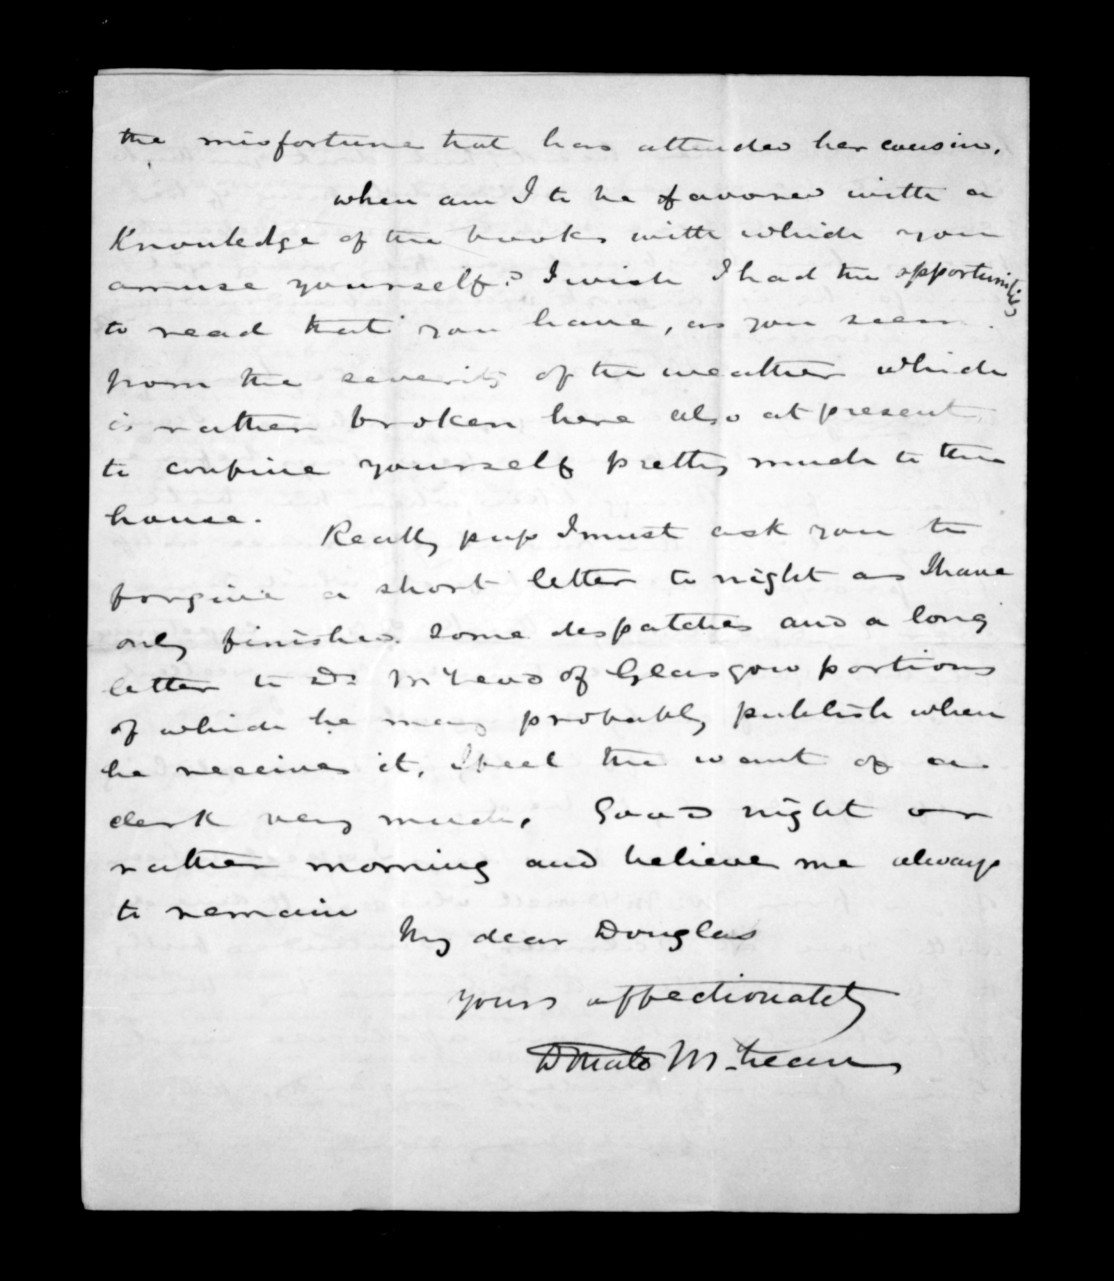 the misfortune that has attended her cousin.
When am I to be favored with a
Knowledge of the books with which you
amuse yourself? I wish I had the opportunities
to read that you have, as you seem
from the severity of the weather which
is rather broken here also at present
to confine yourself pretty much to the
house.
Really pup I must ask you to
forgive a short letter to night as I have
only finished some despatches and a long
letter to Dr McLeod of Glasgow portions
of which he may probably publish when
he receives it, I feel the want of a
clerk very much. Good night or
rather morning and believe me always
to remain
My dear Douglas
yours affectionately
Donald McLean